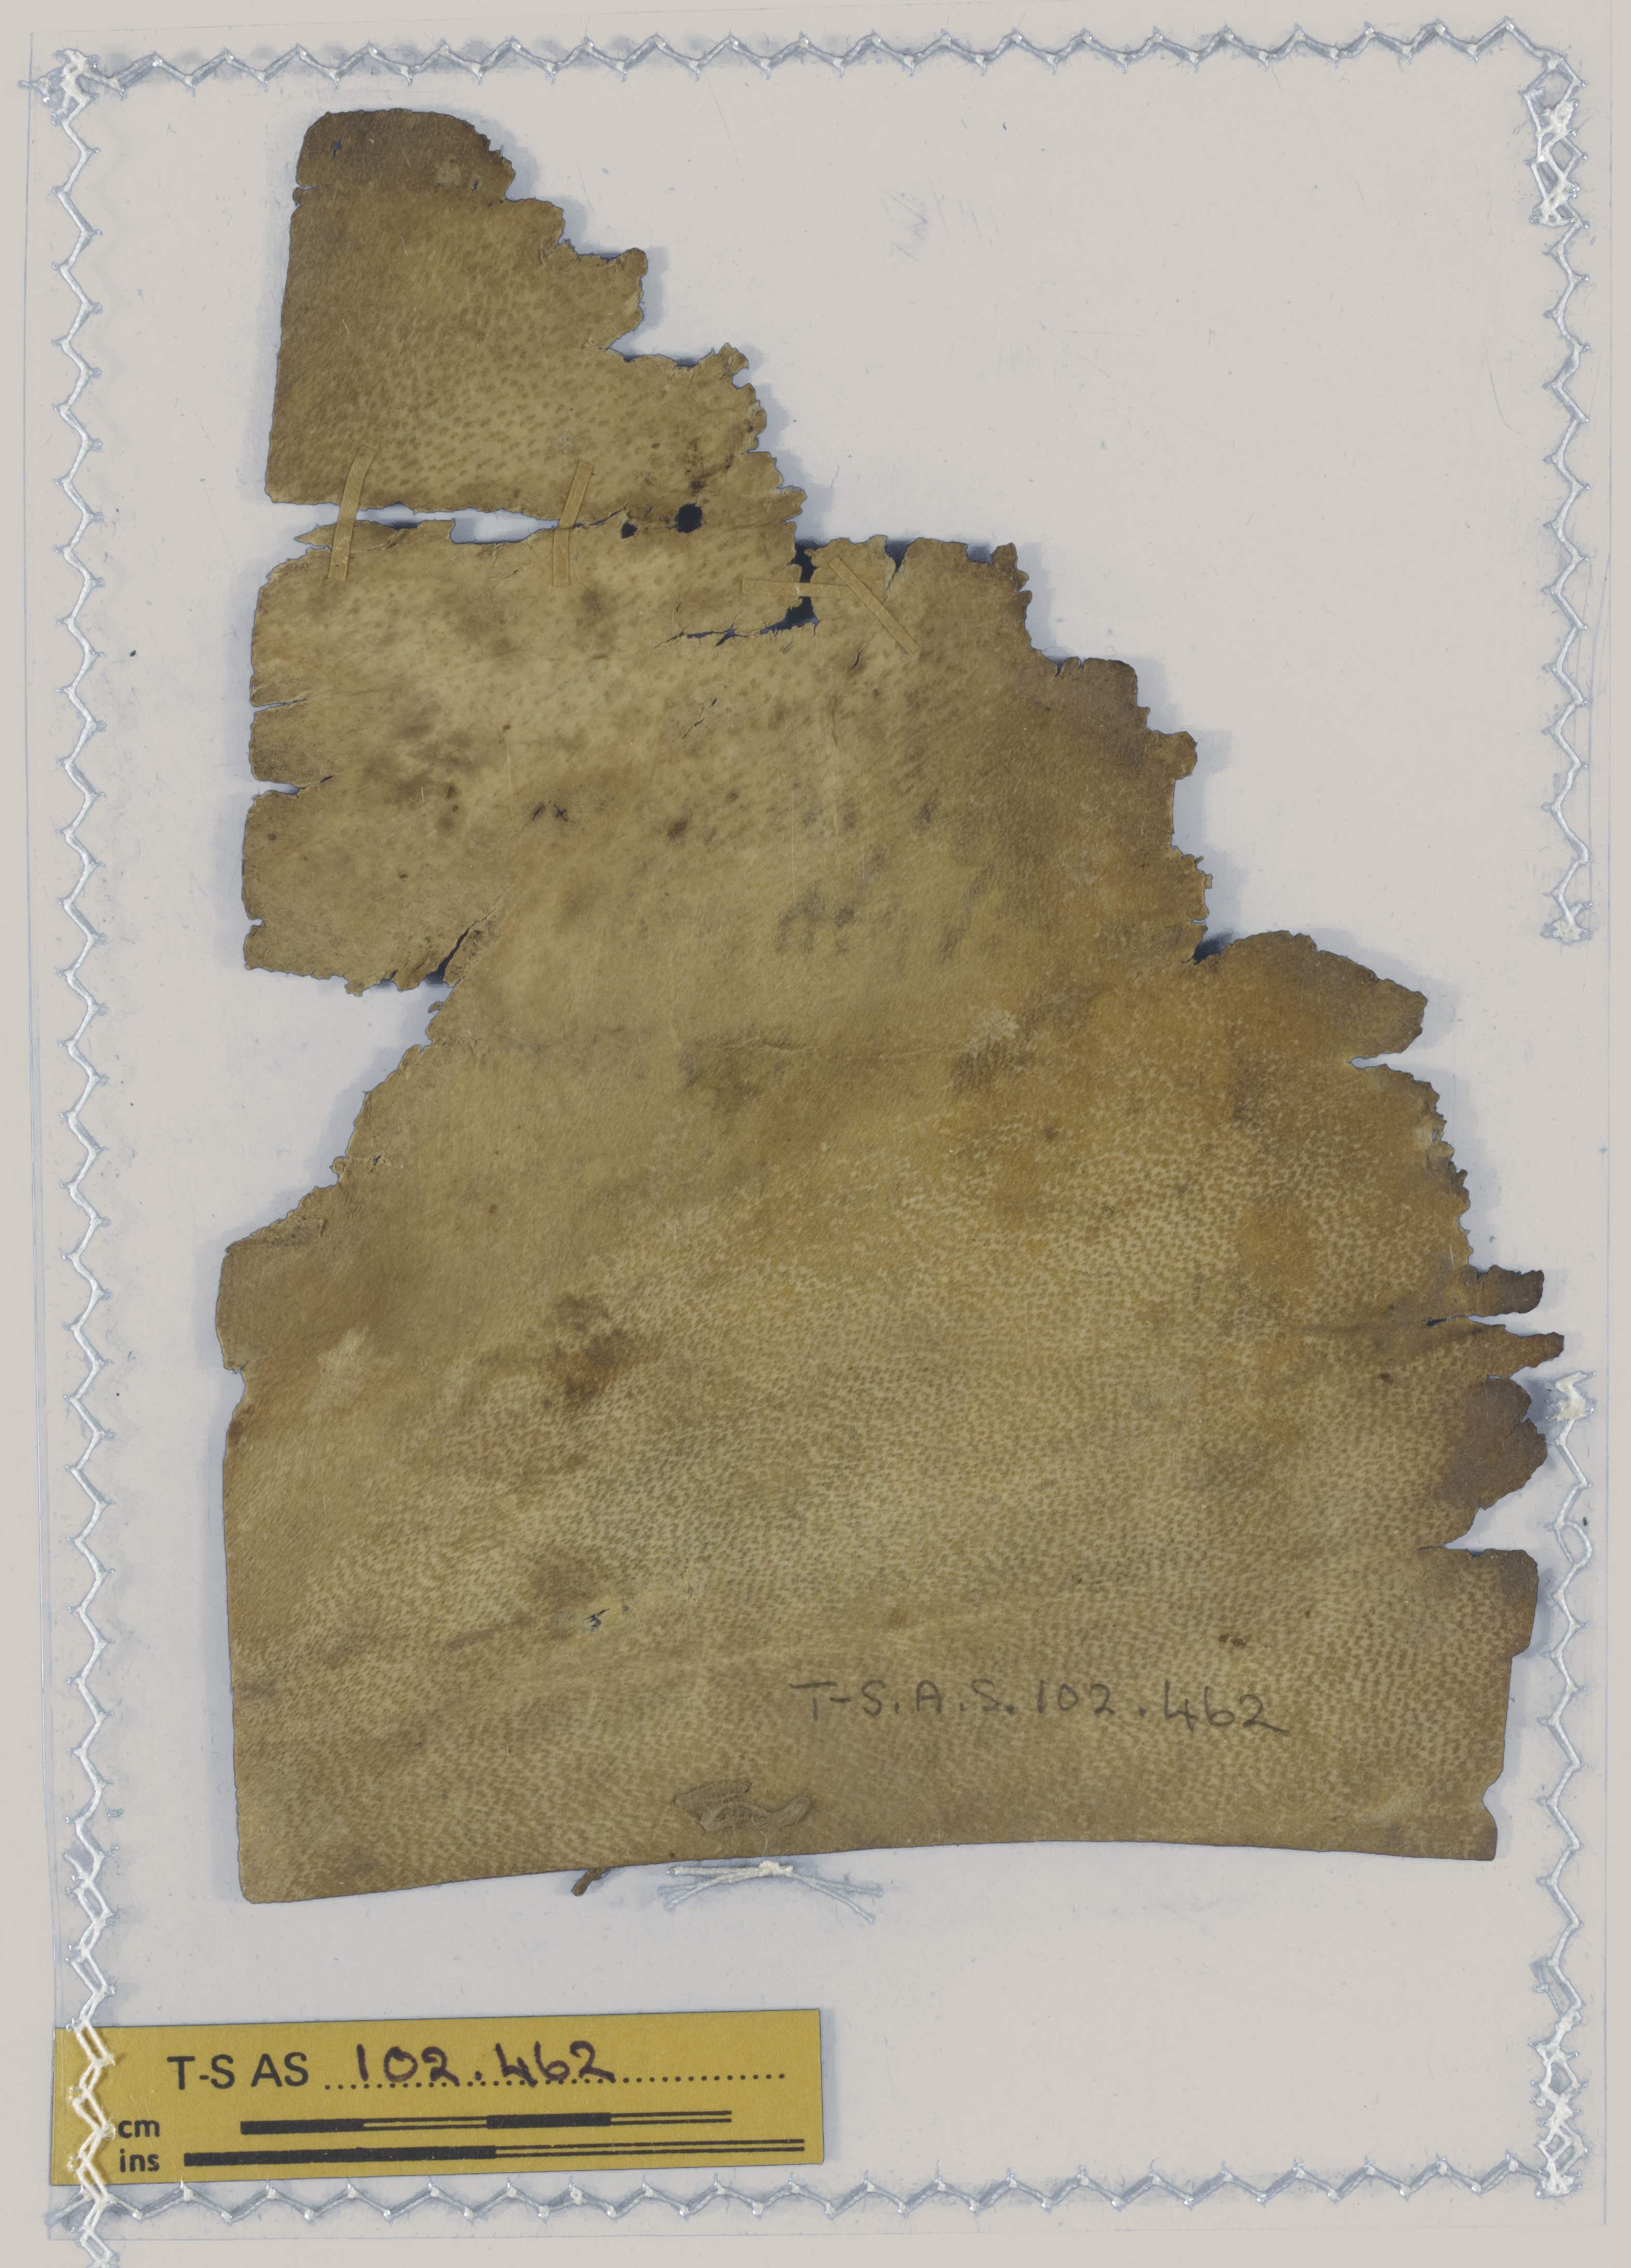 T-S.A.S.102.462
T-S AS 102.462
cm
ins